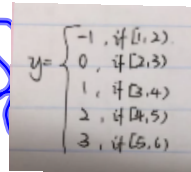 y= { -1 , if [1,2)
0 , if [2,3)
1 , if [3,4)
2 , if [4,5)
3 , if [5,6)